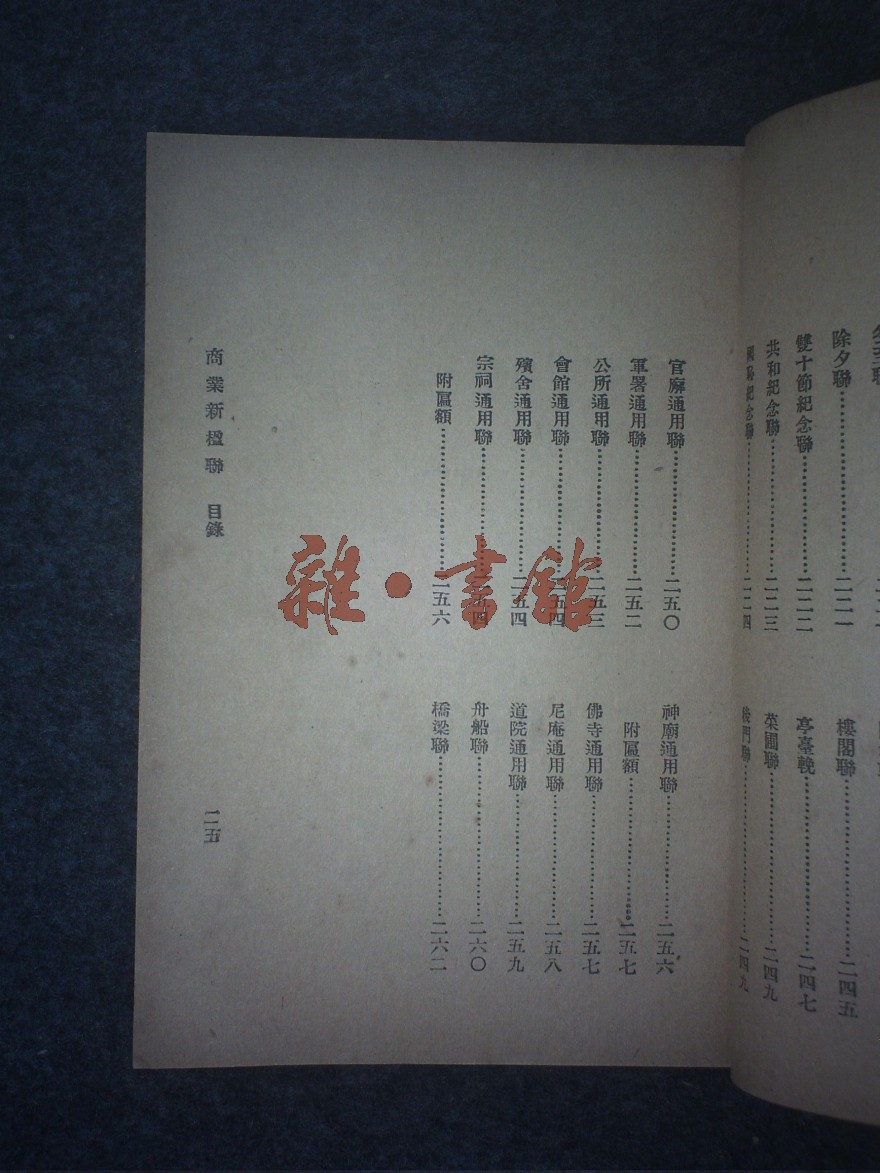 除夕聯⋯⋯二二一
雙十節紀念聯⋯⋯二二二
共和紀念聯⋯⋯二二三
國恥紀念聯⋯⋯二二四
樓閣聯⋯⋯二四五
亭臺輓⋯⋯二四七
菜圃聯⋯⋯二四九
門聯⋯⋯二四九
官廨通用聯⋯⋯二五〇
軍署通用聯⋯⋯二五二
公所通用聯⋯⋯二五三
會館通用聯⋯⋯二五四
殯舍通用聯⋯⋯二五四
宗祠通用聯⋯⋯二五四
附匾額⋯⋯二五六
神廟通用聯⋯⋯二五六
附匾額⋯⋯二五七
佛寺通用聯⋯⋯二五七
尼庵通用聯⋯⋯二五八
道院通用聯⋯⋯二五九
舟船聯⋯⋯二六〇
橋梁聯⋯⋯二六二
商業新楹聯 目錄
二五
雜·書館